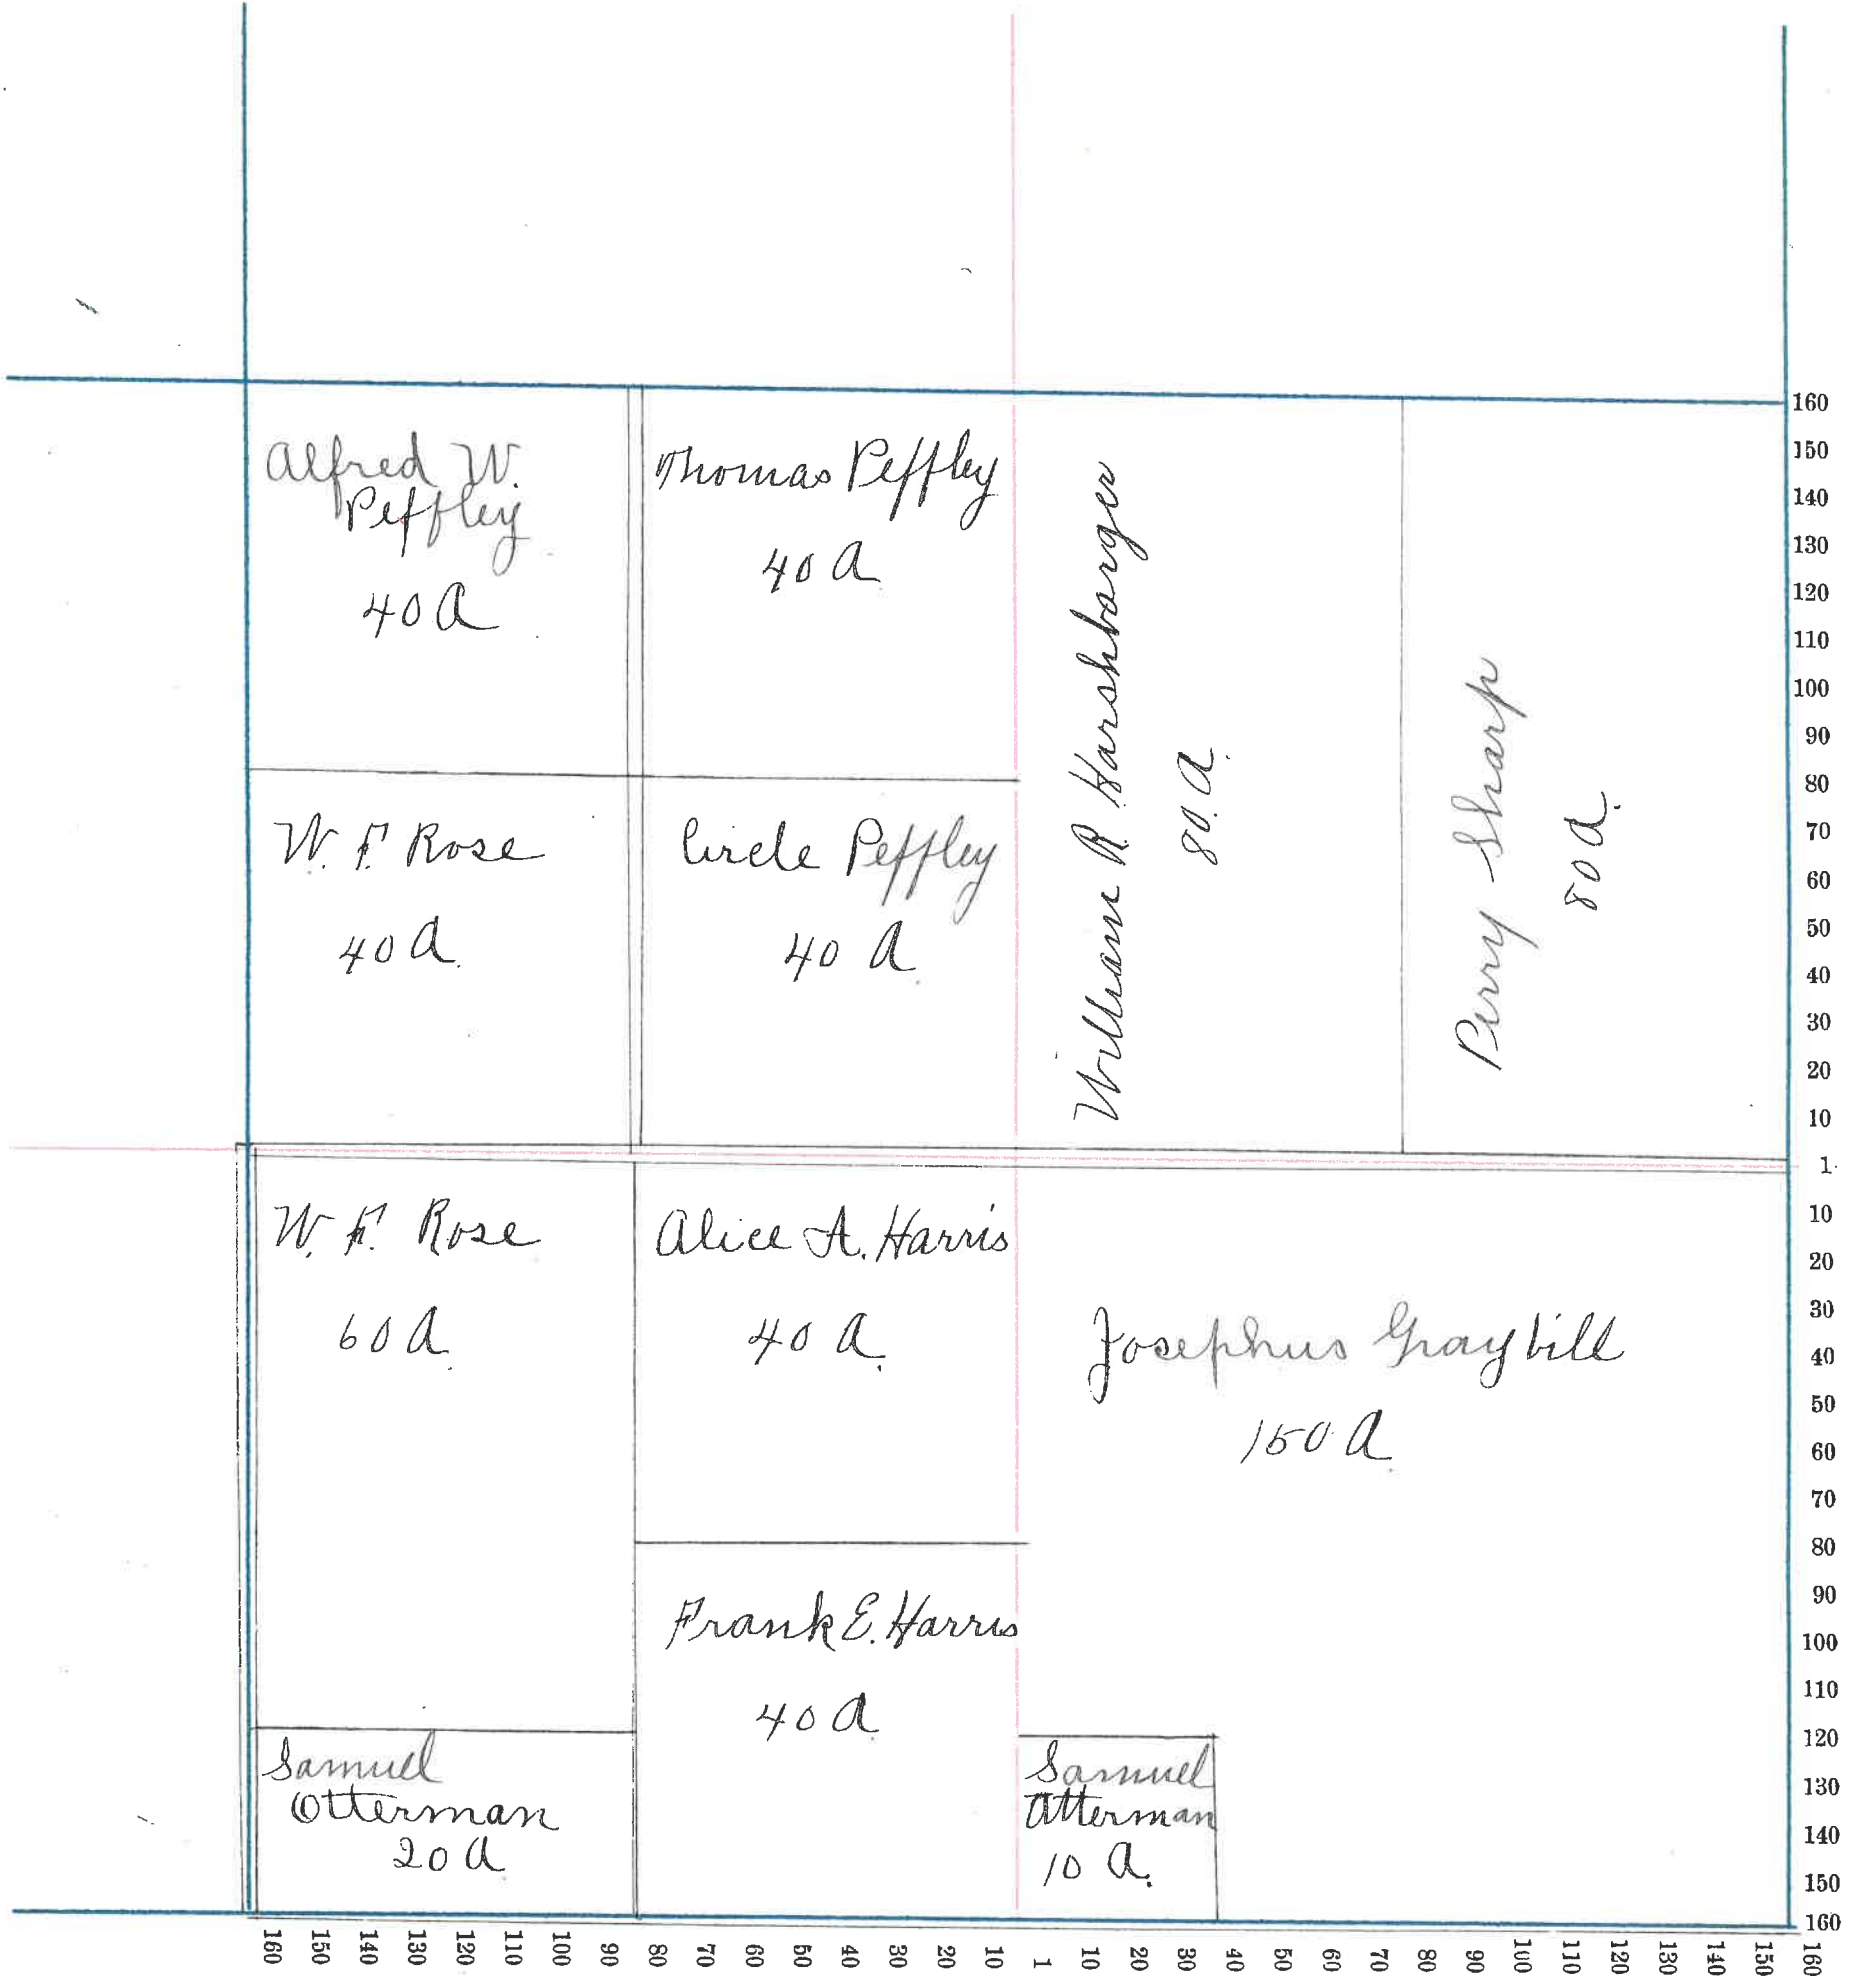 Alfred W.
Peffley
40 A
Thomas Peffley
40 A
William R. Harshbarger
80 A.
Perry Sharp
80 A.
W. F. Rose
40 A.
Circle Peffley
40 A
W. F. Rose
60 A.
Alice A. Harris
40 A.
Josephus Graybill
150 A
Frank E. Harris
40 A
Samuel
Otterman
20 A
Samuel
Otterman
10 A.
160
150
140
130
120
110
100
90
80
70
60
50
40
30
20
10
1
10
20
30
40
50
60
70
80
90
100
110
120
130
140
150
160
160 150 140 130 120 110 100 90 80 70 60 50 40 30 20 10 1 10 20 30 40 50 60 70 80 90 100 110 120 130 140 150 160